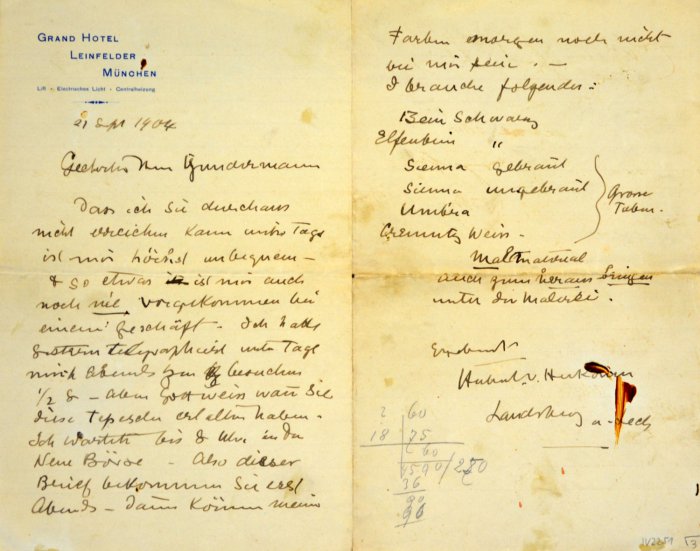 GRAND HOTEL
LEINFELDER
MÜNCHEN
Lift • Electrisches Licht • Centralheizung
21 Sept 1904
Geehrter Herr Gundermann
Dass ich Sie durchaus
nicht erreichen kann unter Tags
ist mir höchst unbequem –
& so etwas ist mir auch
noch nie vorgekommen bei
einem Geschäft. Ich hatte
gestern telegraphiert unter Tage
mich Abends zu besuchen
1/2 8 – aber Gott weiss wann Sie
diese Depesche erhalten haben.
Ich wartete bis 8 Uhr in der
Neue Börse – Also dieser
Brief bekommen Sie erst
Abends – dann können meine
Farben morgen noch nicht
bei mir sein. –
I brauche folgendes:
Bein Schwarz
Elfenbein "
Sienna gebrannt
Sienna ungebrannt
Umbra
Grosse
Tuben.
Cremnitz Weiss.
Malmaterial
auch zum heraus bringen
unter der Malerei.
Ergebenst
Hubert v. Herkomer
Landsberg a. Lech
2 60
18 75
60
1590/280
36
90
90
JV2251